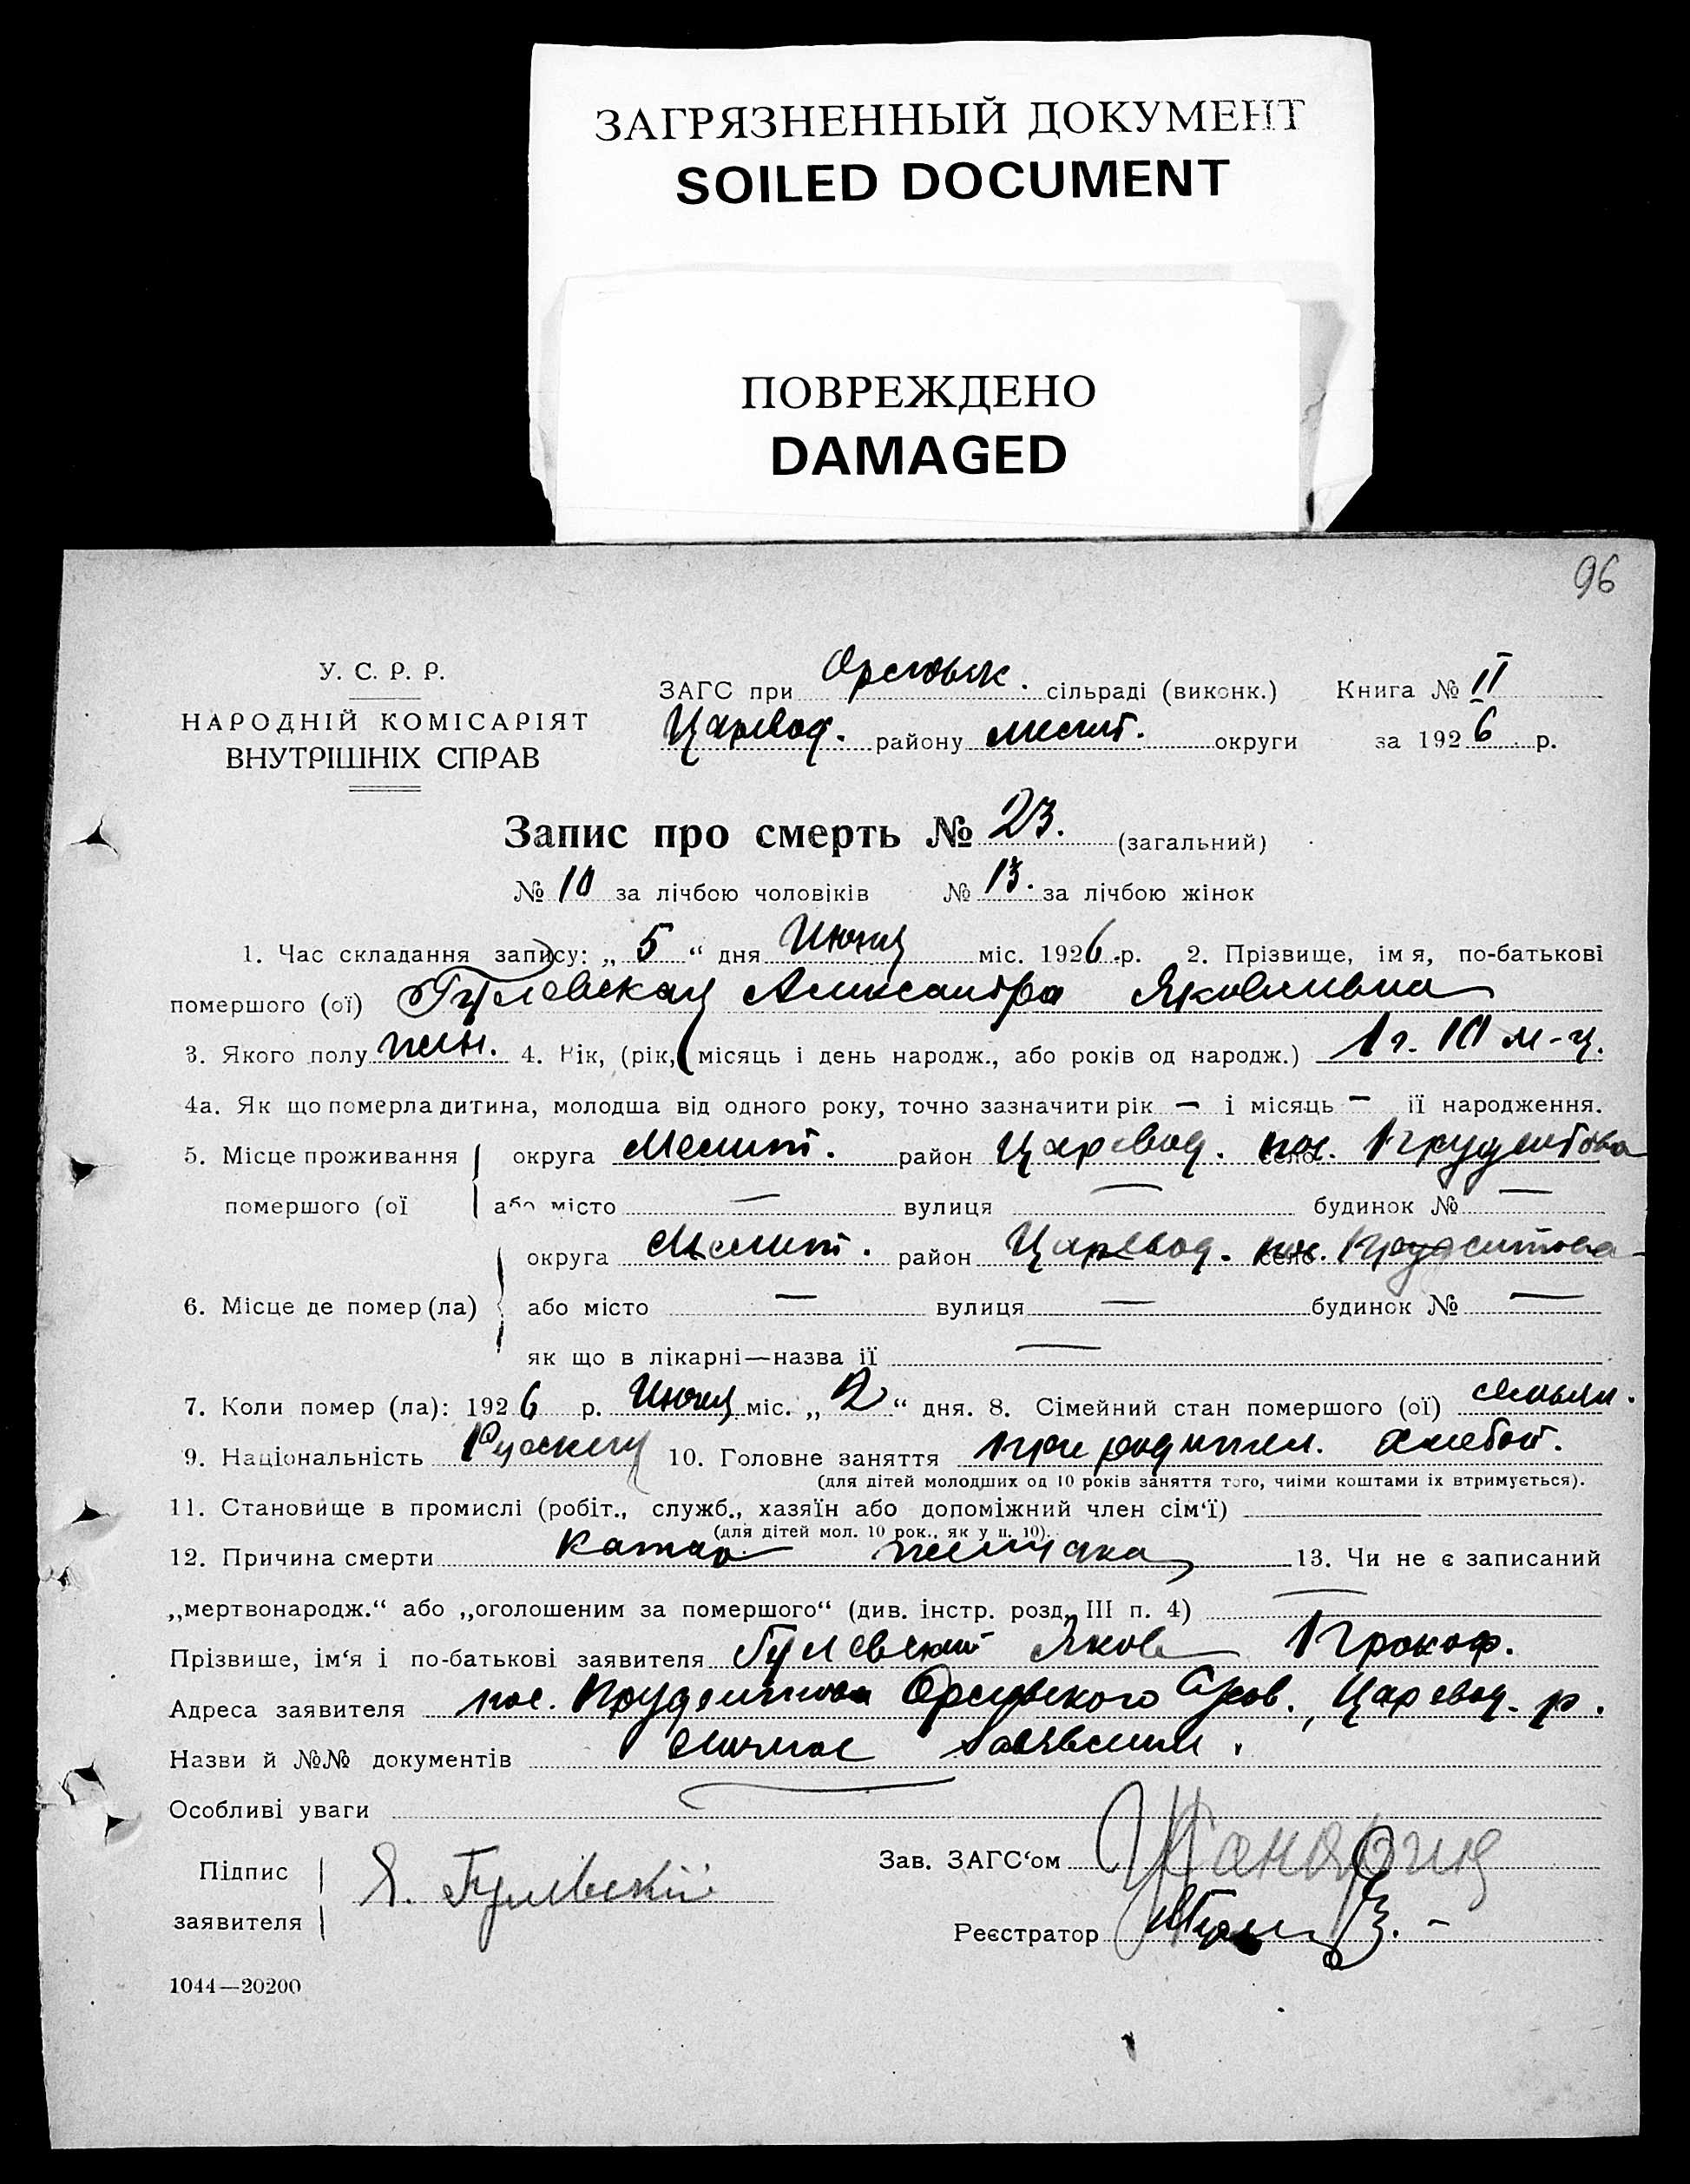 ЗАГРЯЗНЕННЫЙ ДОКУМЕНТ
SOILED DOCUMENT
ПОВРЕЖДЕНО
DAMAGED
96
У. С. Р. Р.
НАРОДНІЙ КОМІСАРІЯТ
ВНУТРІШНІХ СПРАВ
ЗАГС при сільраді (виконк.) Книга № II
Царевод. району мелит. округи за 1926 р.
Запис про смерть № 23. (загальний)
№ 10 за лічбою чоловіків № 13. за лічбою жінок
1. Час складання запису: „ 5 “ дня міс. 1926 р. 2. Прізвище, ім я, по-батькові
помершого (ої) Гулевская Александра Яковлевна
3. Якого полу жен. 4. Рік, (рік, місяць і день народж., або років од народж.) 1 г. 10 м-ц.
4а. Як що померла дитина, молодша від одного року, точно зазначити рік — і місяць — її народження.
5. Місце проживання округа Мелит. район Царевод. пос.
помершого (ої або місто — вулиця — будинок № —
округа Мелит. район Царевод. пос.
6. Місце де помер (ла) або місто — вулиця — будинок № —
як що в лікарні—назва її —
7. Коли помер (ла): 1926 р. міс. „ 2 “ дня. 8. Сімейний стан помершого (ої)
9. Національність 10. Головне заняття при родител. хлебоп.
(для дітей молодших од 10 років заняття того, чиїми коштами їх втримується).
11. Становище в промислі (робіт., служб., хазяїн або допоміжний член сім‘ї)
(для дітей мол. 10 рок., як у п. 10).
12. Причина смерти Катар желудка 13. Чи не є записаний
„мертвонародж.“ або „оголошеним за помершого“ (див. інстр. розд. III п. 4) —
Прізвише, ім‘я і по-батькові заявителя Гулевский Яков Прокоф.
Адреса заявителя пос. Царевод. р.
Назви й №№ документів личное заявление.
Особливі уваги
Підпис заявителя Я. Гулевский
Зав. ЗАГС‘ом
Реєстратор
1044—20200